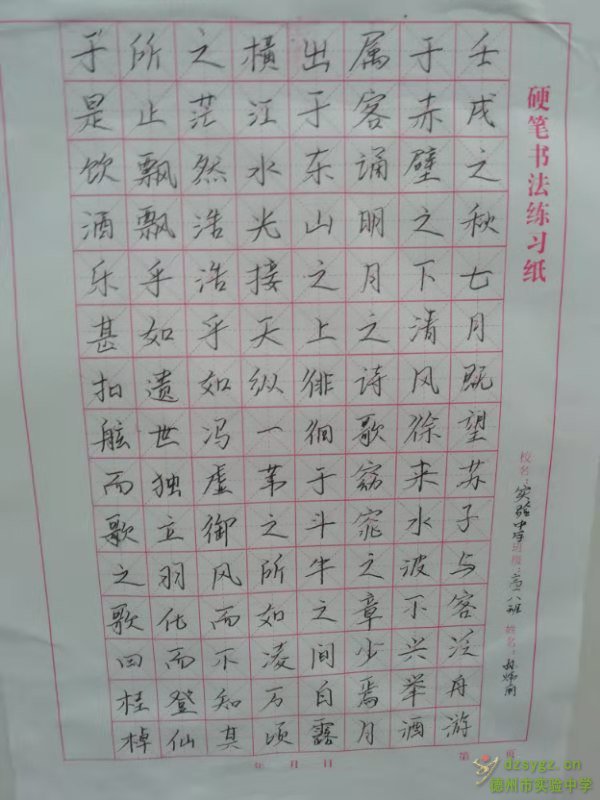 硬笔书法练习纸
校名：实验中学班级：八班 姓名：
壬戌之秋七月既望苏子与客泛舟游
于赤壁之下清风徐来水波不兴举酒
属客诵明月之诗歌窈窕之章少焉月
出于东山之上徘徊于斗牛之间白露
横江水光接天纵一苇之所如凌万顷
之茫然浩浩乎如冯虚御风而不知其
所止飘飘乎如遗世独立羽化而登仙
于是饮酒乐甚扣舷而歌之歌曰桂棹
年 月 日
第 页
dzsygz.cn
德州市实验中学